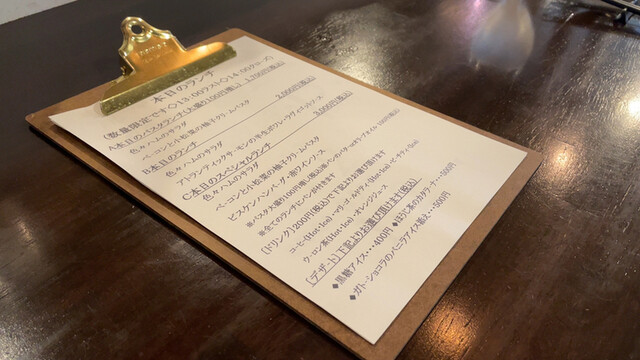 本日のランチ
(数量限定です◇13:00ラスト◇14:00クローズ)
A本日のパスタランチ(大盛り100円増し) 1,700円(税込)
色々ハムのサラダ
ベーコンと小松菜の柚子クリームパスタ
B本日のランチ 2,000円(税込)
色々ハムのサラダ
アトランティックサーモンの
C本日のスペシャルランチ 3,000円(税込)
色々ハムのサラダ
ベーコンと小松菜の柚子クリームパスタ
ビステッカハンバーグ・赤ワインソース
※パスタ大盛り100円増し(税込)
※全てのランチにパンが付きます
(ドリンク)200円(税込)で下記よりお選び頂けます
コーヒー(Hot・Ice)・マリーゴールドティ(Hot・Ice)
ウーロン茶(Hot・Ice)・オレンジジュース
(デザート)下記よりお選び頂けます(税込)
◆黒糖アイス・・・400円 ◆ほうじ茶のカタラーナ・・500円
◆ガトーショコラのバニラアイス添え・・・500円